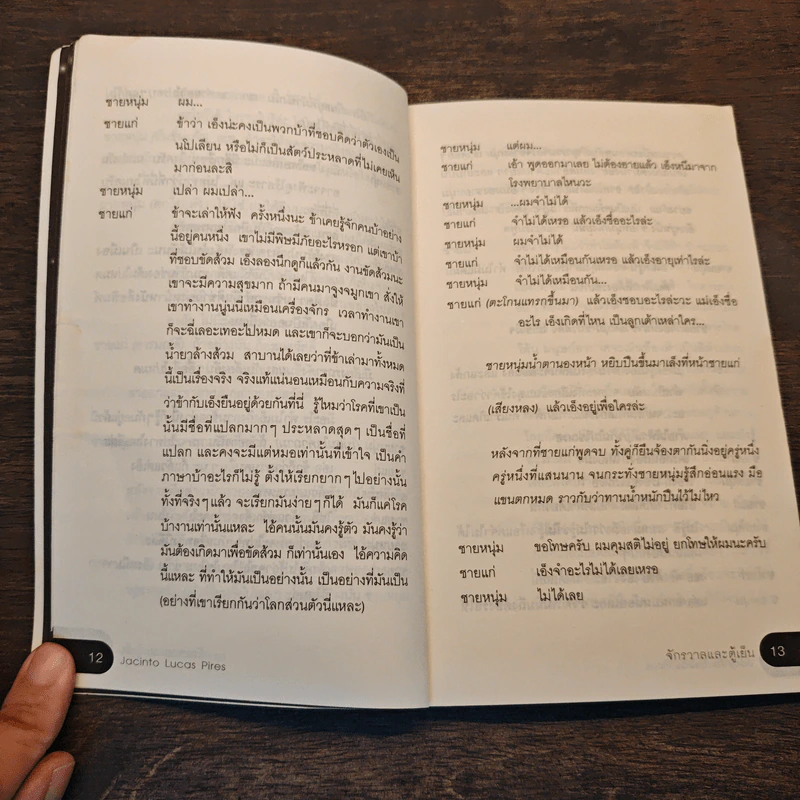 ชายหนุ่ม ผม...
ชายแก่ ข้าว่า เอ็งน่ะคงเป็นพวกบ้าที่ชอบคิดว่าตัวเองเป็น
นโปเลียน หรือไม่ก็เป็นสัตว์ประหลาดที่ไม่เคยเห็น
มาก่อนละสิ
ชายหนุ่ม เปล่า ผมเปล่า...
ชายแก่ ข้าจะเล่าให้ฟัง ครั้งหนึ่งนะ ข้าเคยรู้จักคนบ้าอย่าง
นี้อยู่คนหนึ่ง เขาไม่มีพิษมีภัยอะไรหรอก แต่เขาบ้า
ที่ชอบขัดส้วม เอ็งลองนึกดูก็แล้วกัน งานขัดส้วมนะ
เขาจะมีความสุขมาก ถ้ามีคนมาจูงจมูกเขา สั่งให้
เขาทำงานนู่นนี่เหมือนเครื่องจักร เวลาทำงานเขา
ก็จะฉี่เลอะเทอะไปหมด และเขาก็จะบอกว่ามันเป็น
น้ำยาล้างส้วม สาบานได้เลยว่าที่ข้าเล่ามาทั้งหมด
นี้เป็นเรื่องจริง จริงแท้แน่นอนเหมือนกับความจริงที่
ว่าข้ากับเอ็งยืนอยู่ด้วยกันที่นี่ รู้ไหมว่าโรคที่เขาเป็น
นั้นมีชื่อที่แปลกมากๆ ประหลาดสุดๆ เป็นชื่อที่
แปลก และคงจะมีแต่หมอเท่านั้นที่เข้าใจ เป็นคำ
ภาษาบ้าอะไรก็ไม่รู้ ตั้งให้เรียกยากๆ ไปอย่างนั้น
ทั้งที่จริงๆ แล้ว จะเรียกมันง่ายๆ ก็ได้ มันก็แค่โรค
บ้างานเท่านั้นแหละ ไอ้คนนั้นมันคงรู้ตัว มันคงรู้ว่า
มันต้องเกิดมาเพื่อขัดส้วม ก็เท่านั้นเอง ไอ้ความคิด
นี้แหละ ที่ทำให้มันเป็นอย่างนั้น เป็นอย่างที่มันเป็น
(อย่างที่เขาเรียกกันว่าโลกส่วนตัวนี้แหละ)
12 Jacinto Lucas Pires
ชายหนุ่ม แต่ผม...
ชายแก่ เอ้า พูดออกมาเลย ไม่ต้องอายแล้ว เอ็งหนีมาจาก
โรงพยาบาลไหนวะ
ชายหนุ่ม ...ผมจำไม่ได้
ชายแก่ จำไม่ได้เหรอ แล้วเอ็งชื่ออะไรล่ะ
ชายหนุ่ม ผมจำไม่ได้
ชายแก่ จำไม่ได้เหมือนกันเหรอ แล้วเอ็งอายุเท่าไรล่ะ
ชายหนุ่ม จำไม่ได้เหมือนกัน...
ชายแก่ (ตะโกนแทรกขึ้นมา) แล้วเอ็งชอบอะไรล่ะวะ แม่เอ็งชื่อ
อะไร เอ็งเกิดที่ไหน เป็นลูกเต้าเหล่าใคร...
ชายหนุ่มน้ำตานองหน้า หยิบปืนขึ้นมาเล็งที่หน้าชายแก่
(เสียงหลง) แล้วเอ็งอยู่เพื่อใครล่ะ
หลังจากที่ชายแก่พูดจบ ทั้งคู่ก็ยืนจ้องตากันนิ่งอยู่ครู่หนึ่ง
ครู่หนึ่งที่แสนนาน จนกระทั่งชายหนุ่มรู้สึกอ่อนแรง มือ
แขนตกหมด ราวกับว่าทานน้ำหนักปืนไว้ไม่ไหว
ชายหนุ่ม ขอโทษครับ ผมคุมสติไม่อยู่ ยกโทษให้ผมนะครับ
ชายแก่ เอ็งจำอะไรไม่ได้เลยเหรอ
ชายหนุ่ม ไม่ได้เลย
จักรวาลและตู้เย็น 13